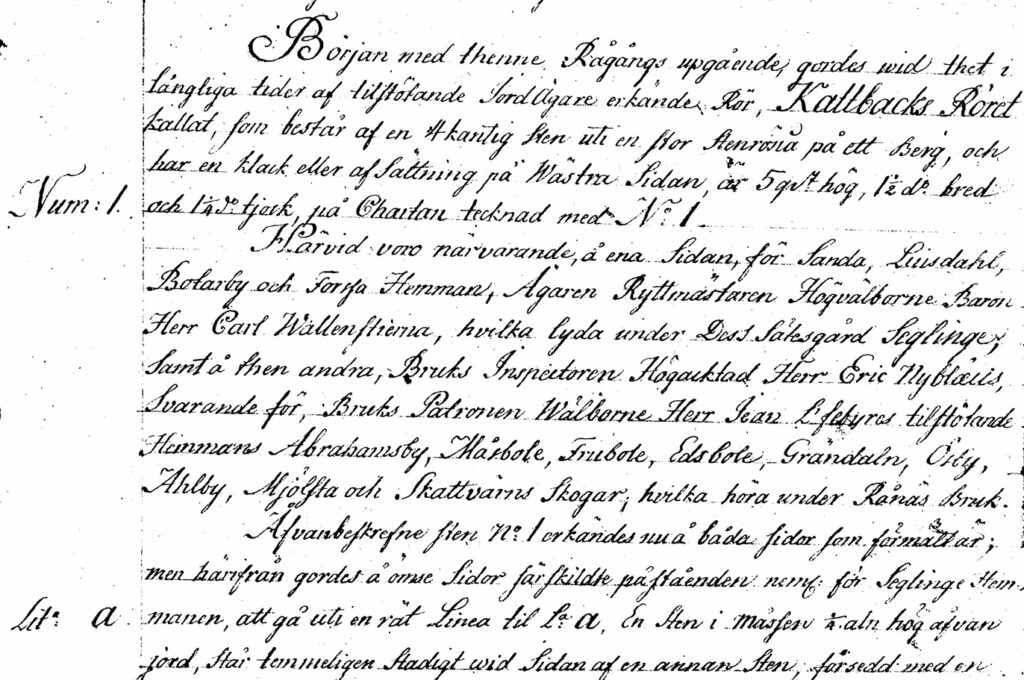 Början med thenne Rågångs upgående, gordes wid thet i
långliga tider af tilstötande Jord Ägare erkände Rör, Kallbacks Röret
kallat, som består af en 4 kantig Sten uti en stor Stenrösia på ett Berg, och
har en klack eller afsättning på Wästra Sidan, är 5 qvt hög, 1½ do bred
Num: 1. och 1¼ do tjock, på Chartan tecknad med No 1
Härvid voro närvarande, å ena Sidan, för Sanda, Liusdahl,
Botarby och Forssa Hemman, Ägaren Ryttmästaren Högvälborne Baron
Herr Carl Wallenstierna, hvilka lyda under Dess Sätesgård Seglinge;
Samt å then andra, Bruks Inspectoren Högacktad Herr Eric Nyblæus,
Svarande för, Bruks Patronen Wälborne Herr Jean Lefebures tilstötande
Hemmans Abrahamsby, Måsbole, Frubole, Edsbole, Grändaln, Ösby,
Ahlby, Mjölsta och Skattvärns Skogar; hvilka höra under Rånäs Bruk.
Äfvanbeskrefne Sten No 1 erkändes nu å båda sidor som förmält är;
men härifrån gordes å ömse Sidor särskildte påståenden neml: för Seglinge Hem-
Lit: a manen, att gå uti en rät Linea til La a, En Sten i måssen ¼ aln hög åfvan
jord, står temmeligen stadigt wid Sidan af en annan Sten, försedd med en